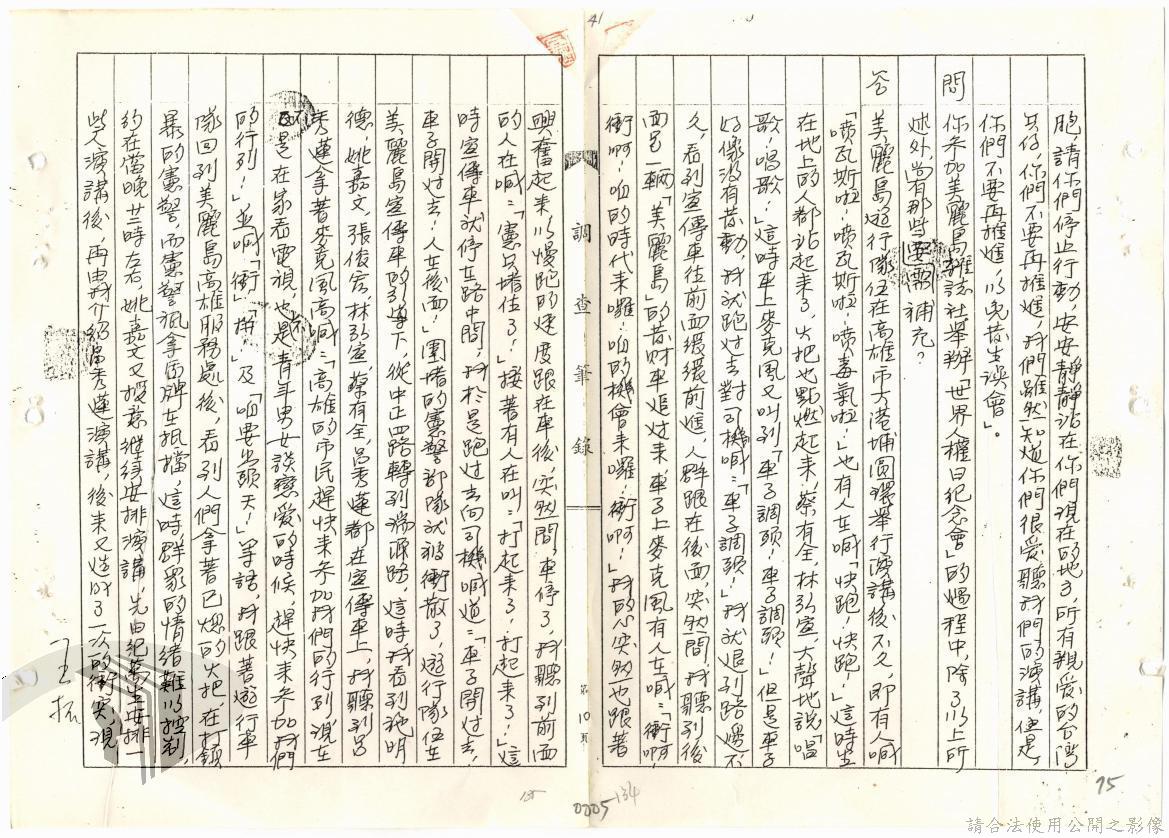 41
胞請你們停止行動,安安靜靜站在你們現在的地方,所有親愛的台灣
只好,你們不要再推進,我們雖然知道你們很愛聽我們的演講,但是,
你們不要再推進,以免發生誤會」。
問 你參加美麗島雜誌社舉辦「世界人權日紀念會」的過程中,除了以上所
述外,尚有那些要補充?
答 美麗島遊行隊伍在高雄市大港埔圓環舉行演講後不久,即有人喊
「噴瓦斯啦!噴瓦斯啦!噴毒氣啦!」也有人在喊「快跑!快跑!」這時坐
在地上的人都站起來了,火把也點燃起來,蔡有全、林弘宣,大聲地說「唱
歌!唱歌!」這時車上麥克風又叫到「車子調頭!車子調頭!」但是車子
好像沒有發動,我就跑過去對司機喊:「車子調頭!」我就退到路邊不
久,看到宣傳車往前面緩緩前進,人群跟在後面,突然間,我聽到後
面另一輛「美麗島」的發財車追过来,車子上麥克風有人在喊:「衝啊,
衝啊!咱的時代来囉!咱的機會来囉!衝啊!」我的心突然也跟著
調查筆錄
第10頁
興奮起来,以慢跑的速度跟在車後,突然間,車停了,我聽到前面
的人在喊:「憲兵堵住了!」接著有人在叫:「打起来了,打起来了!」這
時宣傳車就停在路中間,我於是跑过去向司機喊道:「車子開过去,
車子開过去!人在後面!」圍堵的憲警部隊就被衝散了,遊行隊伍在
美麗島宣傳車的引導下,從中正四路轉到瑞源路,這時我看到施明
德,姚嘉文,張俊宏,林弘宣,蔡有全,呂秀蓮都在宣傳車上,我聽到呂
秀蓮拿著麥克風高喊:「高雄的市民趕快来參加我們的行列,現在
不是在家看電視,也不是青年男女談戀愛的時候,趕快来參加我們
的行列!」並喊「衝」「拼」及「咱要出頭天!」等話,我跟著遊行車
隊回到美麗島高雄服務處後,看到人們拿著已熄的火把,在打鎮
暴的憲警,而憲警祇拿盾牌在抵擋,這時群眾的情緒難以控制,
約在當晚廿二時左右,姚嘉文又授意繼續安排演講,先由紀萬生安排一
些人演講後,再由我介紹呂秀蓮演講,後来又造成了一次的衝突,現
王拓
0005
134
75
請合法使用公開之影像